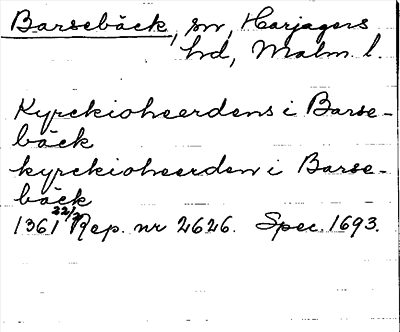 Barsebäck, sn, Harjagers
hd, Malm. l.
Kyrckioheerdens i Barse-
bäck
kyrckioheerden i Barse-
bäck
1361 22/2 Rep. nr 2626. Spec. 1693.